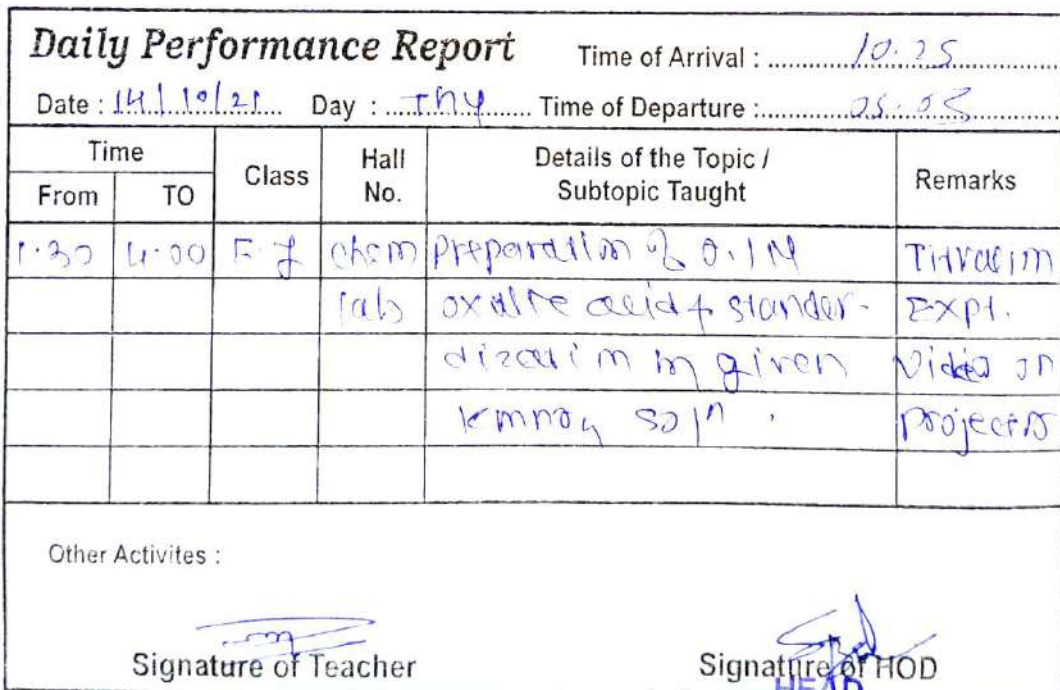 Daily Performance Report Time of Arrival : 10.25
Date : 14/10/21 Day : Thu Time of Departure : 05.05
Time Class Hall No. Details of the Topic / Subtopic Taught Remarks
From TO
1.30 4.00 F.Y chem preparation of 0.1N Titration
lab oxalic acid & stander- Expt.
dization in given Video on
kmno4 sol^n . projector
Other Activites :
Signature of Teacher Signature of HOD
HEAD